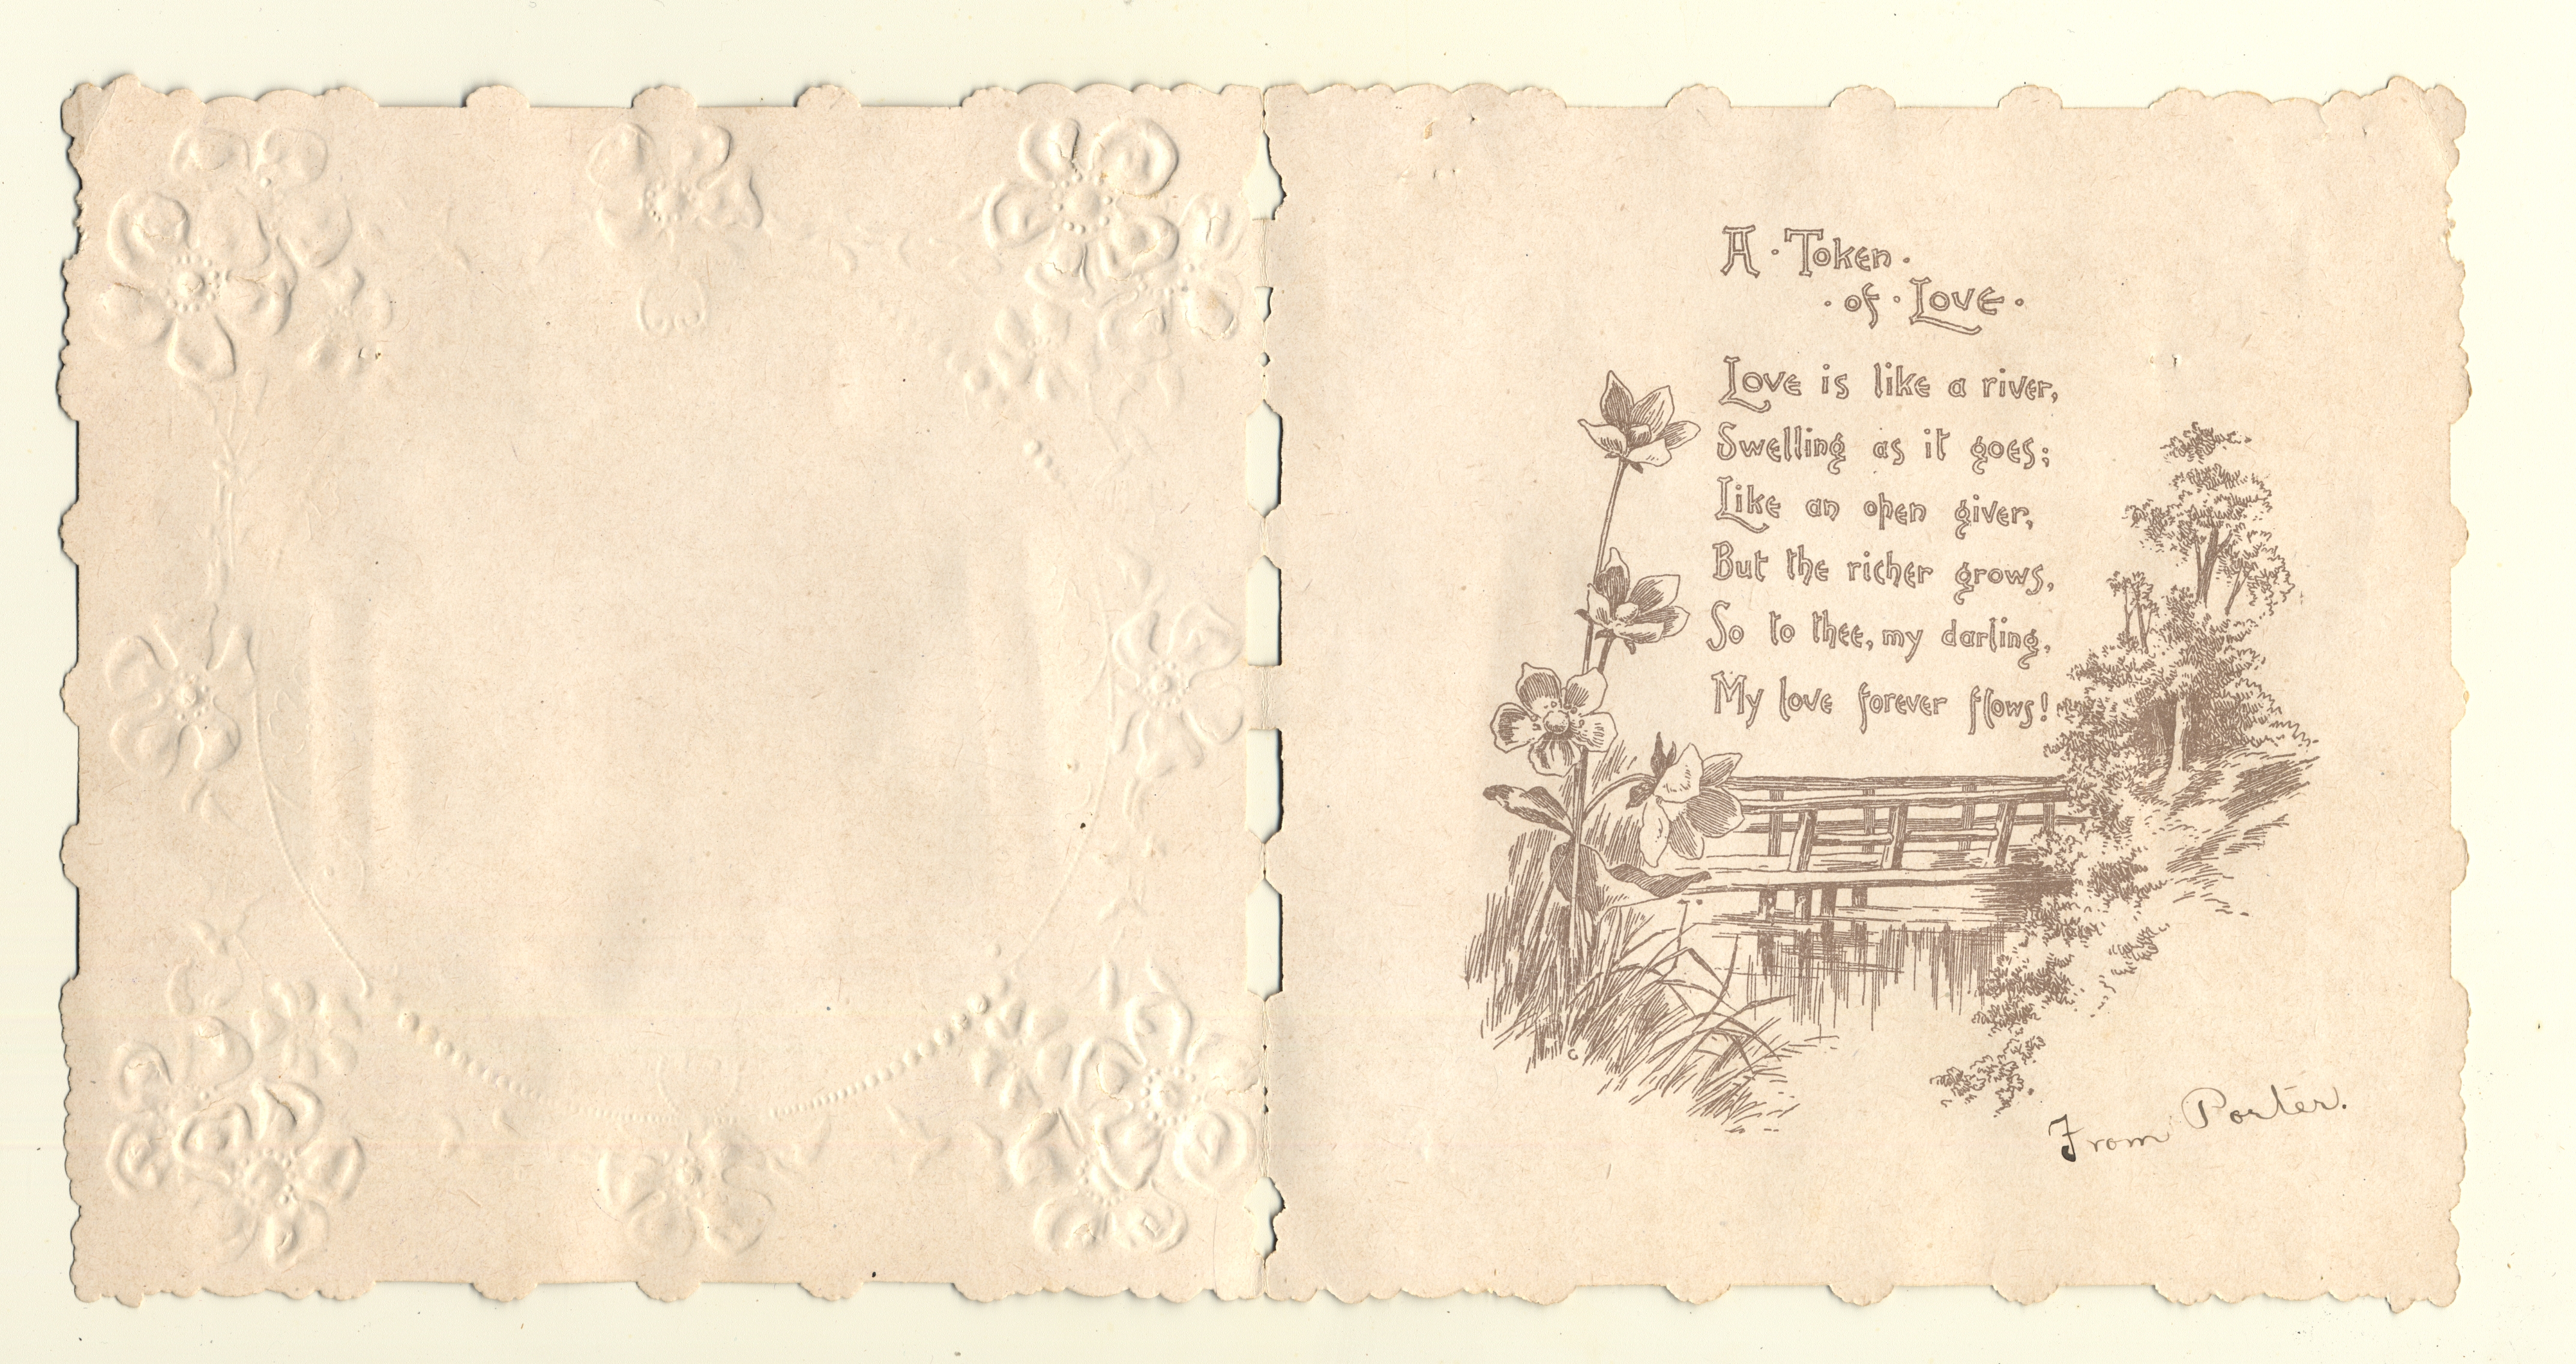 A · Token ·
· of · Love ·
Love is like a river,
Swelling as it goes;
Like an open giver,
But the richer grows,
So to thee, my darling,
My love forever flows!
From Porter.